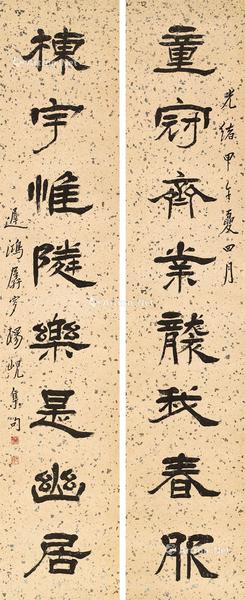 童冠齊業襲我春服
光緒甲午夏四月
棟宇惟隣樂是幽居
遲鴻孱 楊峴集句